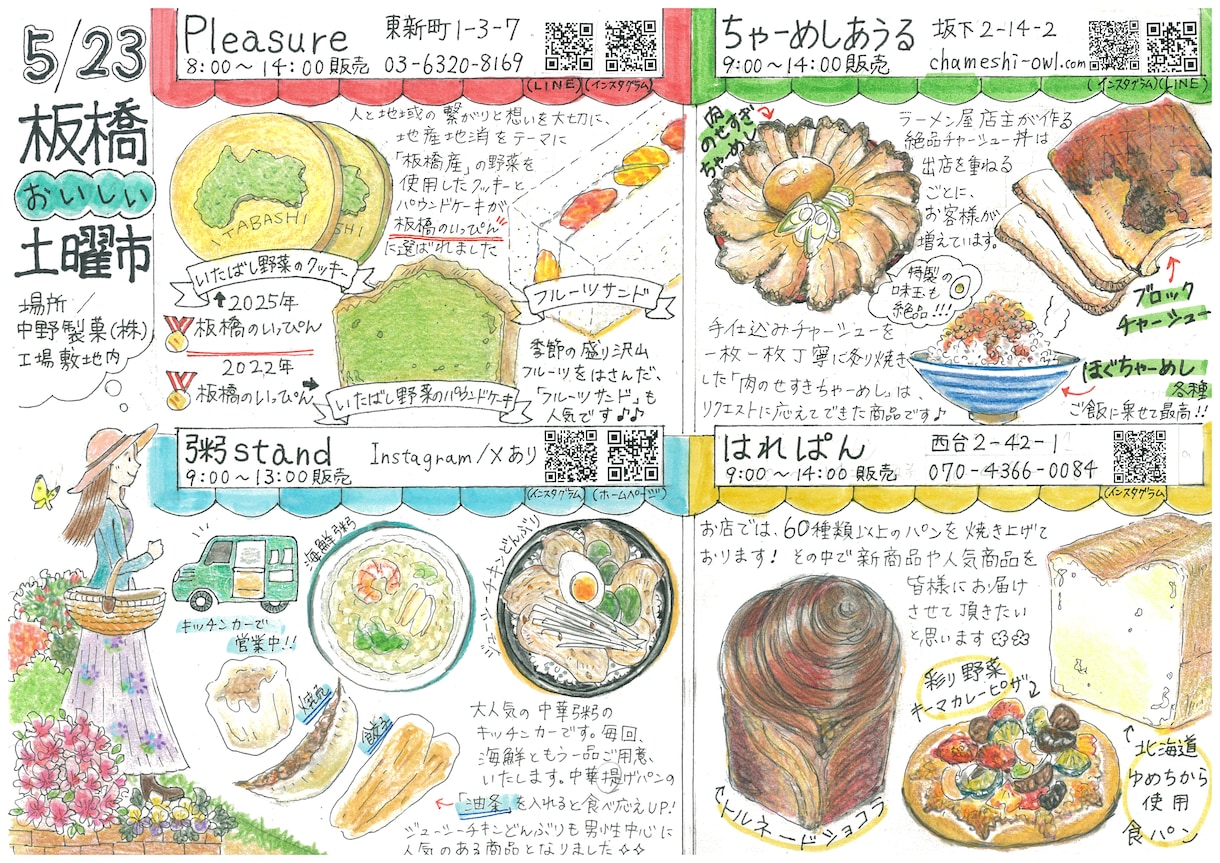 5/23
板橋
おいしい
土曜市
場所/
中野製菓(株)
工場敷地内
Pleasure
東新町1-3-7
8:00～14:00販売
03-6320-8169
(LINE)(インスタグラム)
人と地域の繋がりと想いを大切に、
地産地消をテーマに
「板橋産」の野菜を
使用したクッキーと
パウンドケーキが
板橋のいっぴん
に選ばれました
ITABASHI
SHI
いたばし野菜のクッキー
2025年
板橋のいっぴん
2022年
板橋のいっぴん
いたばし野菜のパウンドケーキ
フルーツサンド
季節の盛り沢山
フルーツをはさんだ、
「フルーツサンド」も
人気です♪♪
ちゃーめしあうる
坂下2-14-2
9:00～14:00販売
chameshi-owl.com
(インスタグラム)(LINE)
肉
のせすぎ
ちゃーめし
ラーメン屋店主が作る
絶品チャーシュー丼は
出店を重ねる
ごとに、
お客様が
増えています。
特製の
味玉も
絶品!!!
ブロック
チャーシュー
手仕込みチャーシューを
一枚一枚丁寧に炙り焼き
した「肉のせすきちゃーめし」は、
リクエストに応えてできた商品です♪
ほぐちゃーめし
各種
ご飯に乗せて最高!!
粥stand
Instagram/Xあり
9:00～13:00販売
(インスタグラム)(ホームページ)
キッチンカーで
営業中!!
海鮮粥
ジューシーチキンどんぶり
焼売
餃子
大人気の中華粥の
キッチンカーです。毎回、
海鮮ともう一品ご用意、
いたします。中華揚げパンの
「油条」を入れると食べ応えUP!
ジューシーチキンどんぶりも男性中心に
人気のある商品となりました☆☆
はれぱん
西台2-42-1
9:00～14:00販売
070-4366-0084
(インスタグラム)
お店では、60種類以上のパンを焼き上げて
おります! その中で新商品や人気商品を
皆様にお届け
させて頂きたい
と思います
彩り野菜
キーマカレーピザ
トルネードショコラ
北海道
ゆめちから
使用
食パン